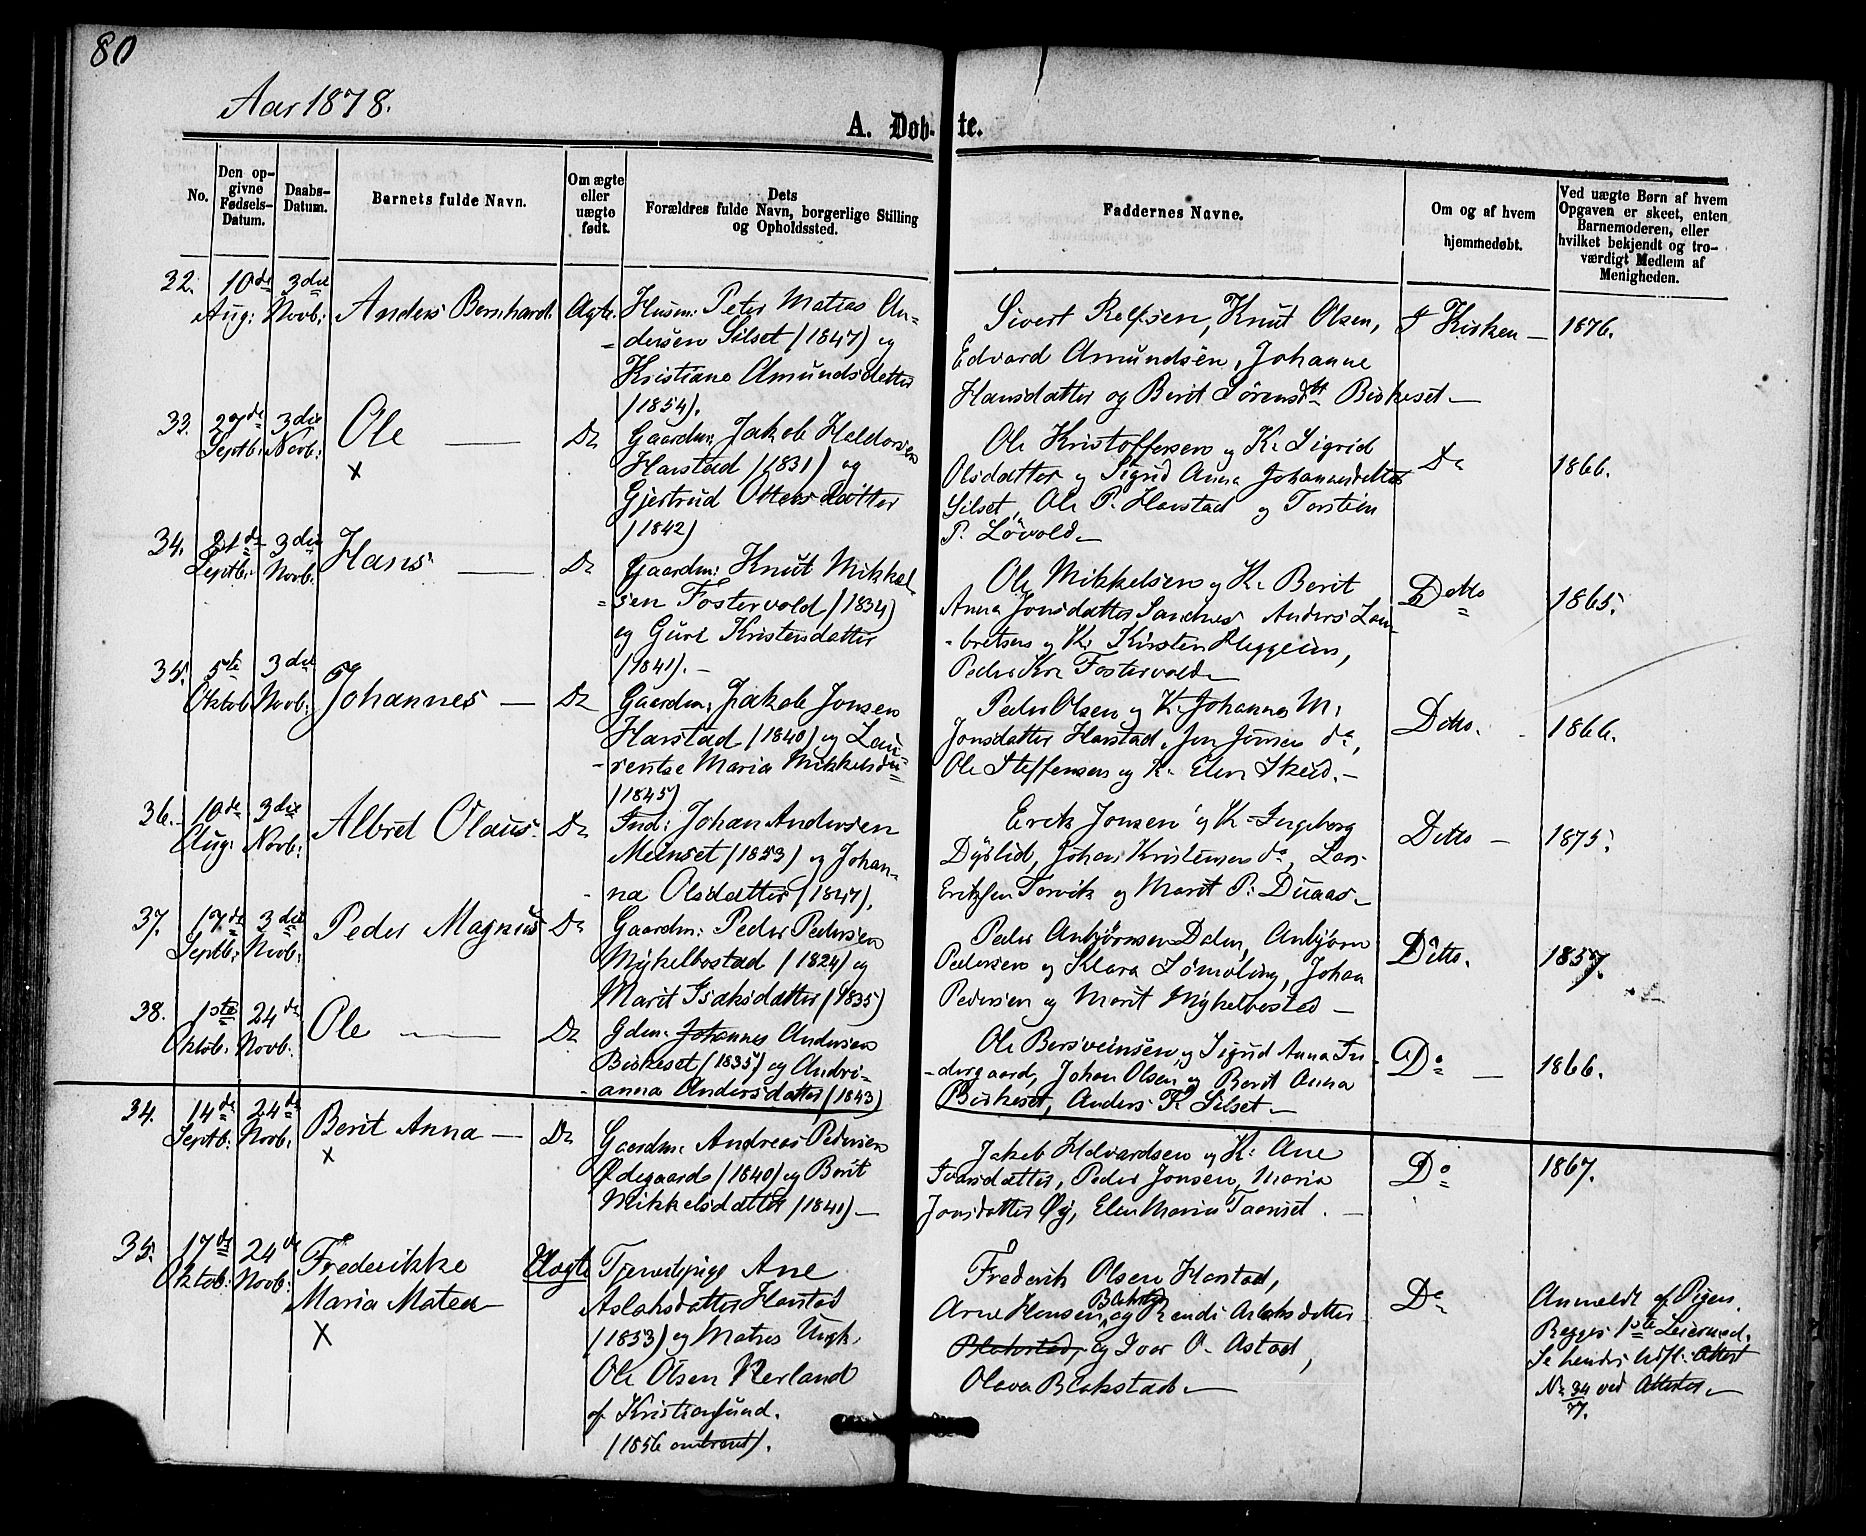 80
Aar 1878.
A. Døb- te.
No.
Den op-
givne
Fødsels-
Datum.
Daabs-
Datum.
Barnets fulde Navn.
Om ægte
eller
uægte
født.
Dets
Forældres fulde Navn, borgerlige Stilling
og Opholdssted.
Faddernes Navne.
Om og af hvem
hjemmedøbt.
Ved uægte Børn af hvem
Opgaven er skeet, enten
Barnemoderen, eller
hvilket bekjendt og tro-
værdigt Medlem af
Menigheden.
32.
10de
Aug:
3die
Novb:
Anders Bernhard.
Ægte.
Husm: Peter Matias An-
dersen Silset (1847) og
Kristiane Amundsdatter
(1854).
Sivert Rolfsen, Knut Olsen,
Edvard Amundsen, Johanne
Hansdatter og Berit Sørensdtr Birkeset —
I Kirken —
1876.
33.
27de
Septb:
3die
Novb:
Ole —
x
Do
Gaardm: Jakob Haldorsen
Harstad (1831) og
Gjertrud Ottersdatter
(1842)
Ole Kristoffersen og K. Sigrid
Olsdatter og Sigrid Anna Johannesdatter
Silset, Ole P. Harstad og Torstein
P. Løvold —
Do
1866.
34.
21de
Septb:
3die
Novb:
Hans —
Do
Gaardm: Knut Mikkel-
sen Fostervold (1834)
og Guri Kristensdatter
(1841). —
Ole Mikkelsen og K. Berit
Anna Jonsdatter Sandnes Anders Lam-
bretsen og K. Kirsten Heggeim,
Peder Kr. Fostervold —
Ditto
1865.
35.
5te
Oktob
3die
Novb:
Johannes —
Do
Gaardm: Jakob Jonsen
Harstad (1840) og Lau-
rentse Maria Mikkelsdtr
(1845)
Peder Olsen og K. Johanna M.
Jonsdatter Harstad, Jon Jonsen do,
Ole Steffensen og K. Elen Skeid. —
Ditto.
1866.
36.
10de
Aug:
3die
Novb:
Albret Olaus.
Do
Ind: Johan Andersen
Meinset (1853) og Johan-
na Olsdatter (1847).
Erik Jonsen og K. Ingeborg
Dyrlid, Johan Kristensen do, Lars
Eriksen Torvik og Marit P. Duaas —
Ditto —
1875.
37.
17de
Septb:
3die
Novb:
Peder Magnus
Do
Gaardm: Peder Pedersen
Mykelbostad (1824) og
Marit Isaksdatter (1835)
Peder Anbjørnsen Dalen, Anbjørn
Pedersen og Klara Sømoling, Johan
Pedersen og Marit Mykelbostad —
Ditto.
1857.
38.
1ste
Oktob:
24de
Novb:
Ole —
Do
Gdm: Johannes Andersen
Birkeset (1835) og Andri-
anna Andersdatter (1843)
Ole Bersveinsen og Sigrid Anna In-
dergaard, Johan Olsen og Berit Anna
Birkeset, Anders K. Silset —
Do —
1866.
34.
14de
Septb:
24de
Novb:
Berit Anna —
x
Do
Gaardm: Andreas Pedersen
Ødegaard (1840) og Berit
Mikkelsdatter (1841) —
Jakob Halvardsen og K. Ane
Ivarsdatter, Peder Jonsen, Maria
Jonsdatter Øy, Elen Maria Taarset. —
Do
1867.
35.
17de
Oktob:
24de
Novb:
Frederikke
Maria Matea —
X
Uægte
Tjenestpige Ane
Aslaksdatter Harstad
(1853) og Matros Ungk.
Ole Olsen Nerland
af Kristiansund.
(1856 omtrent).
Frederik Olsen Harstad,
Arne Hansen Blakstad og Randi Aslaksdatter
Blakstad, og Iver O. Astad,
Olava Blakstad —
Do
Anmeldt af Pigen.
Begges 1ste Leiermaal.
Se hendes Indfl. Attest
No 34/77 ved Attester —